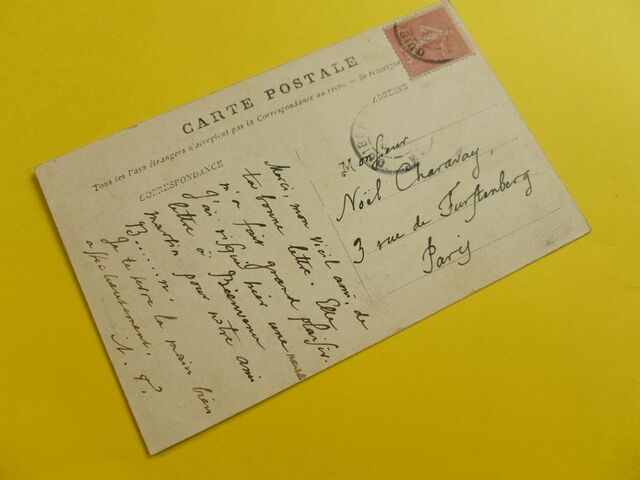 CARTE POSTALE
Tous les Pays étrangers n'acceptent pas la Correspondance au recto. - Se renseigner
CORRESPONDANCE
ADRESSE
Merci, mon vieil ami, de
ta bonne lettre. Elle
m'a fait grand plaisir.
J'ai risqué hier une nouvelle
lettre à Bienvenu
martin pour notre ami
B......n.
Je te serre la main bien
affectueusement.
A. F.
Monsieur
Noël Charavay,
3 rue de Furstenberg
Paris